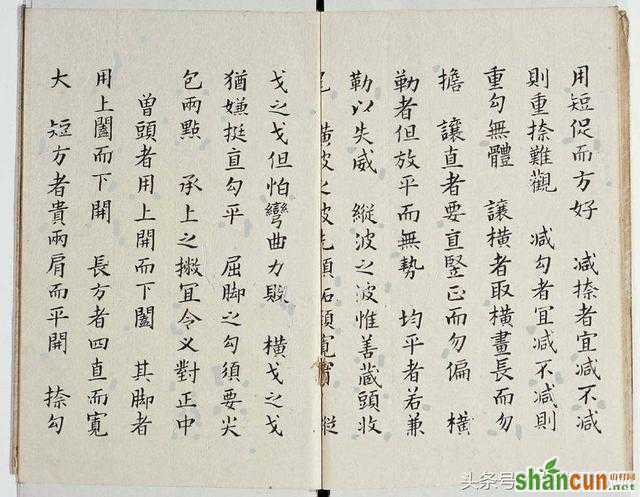 用短促而方好　减捺者宜减不减
則重捺難觀　减勾者宜减不减則
重勾無體　讓橫者取橫畫長而勿
擔　讓直者要直竪正而勿偏　橫
勒者但放平而無勢　均平者若兼
勒以失威　縱波之波惟善藏頭收
尾　橫波之波先須拓頸寬　縱
戈之戈但怕彎曲力敗　橫戈之戈
猶嫌挺直勾平　屈脚之勾須要尖
包兩點　承上之撇宜令义對正中
曾頭者用上開而下闔　其脚者
用上闔而下開　長方者四直而寬
大　短方者貴兩肩而平開　捺勾
头条号
shancun
.net